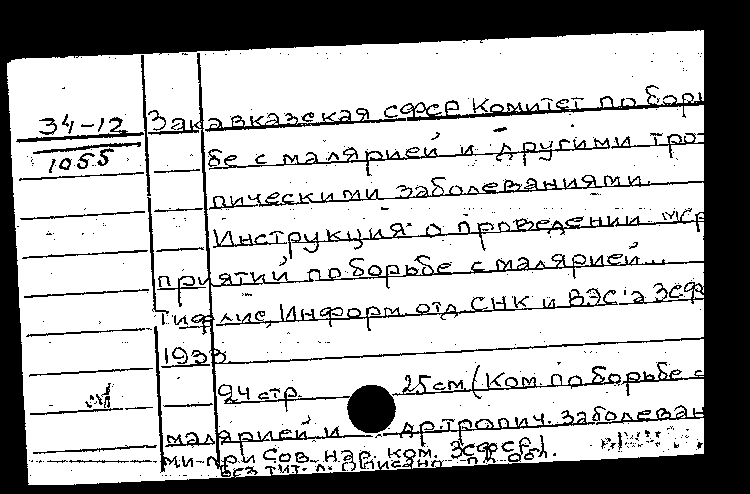 34-12
1055
Закавказская СФСР Комитет по борь
бе с малярией и другими тро-
пическими заболеваниями.
Инструкция о проведении мер
приятий по борьбе с малярией...
Тифлис, Информ. отд. СНК и ВЭС'а ЗСФ
1933.
24 стр. 25 см. (Ком. по борьбе с
малярией и др тропич. заболеван
ми при Сов. нар. ком. ЗСФСР).
Без тит. л. Описано по обл.